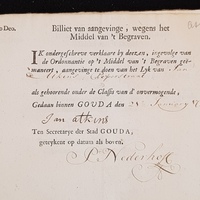 o Deo.
Billiet van aangevinge, wegens het
Middel van 't Begraven.
IK ondergeschreve verklaare by deezen, ingevolge van
de Ordonnantie op 't Middel van 't Begraven ge-
ëmaneert, aangevinge te doen van het Lyk van
als gehoorende onder de Classis van d'onvermogende,
Gedaan binnen GOUDA den
Jan atkins
Ten Secretarye der Stad GOUDA,
geteykent op datum als boven.